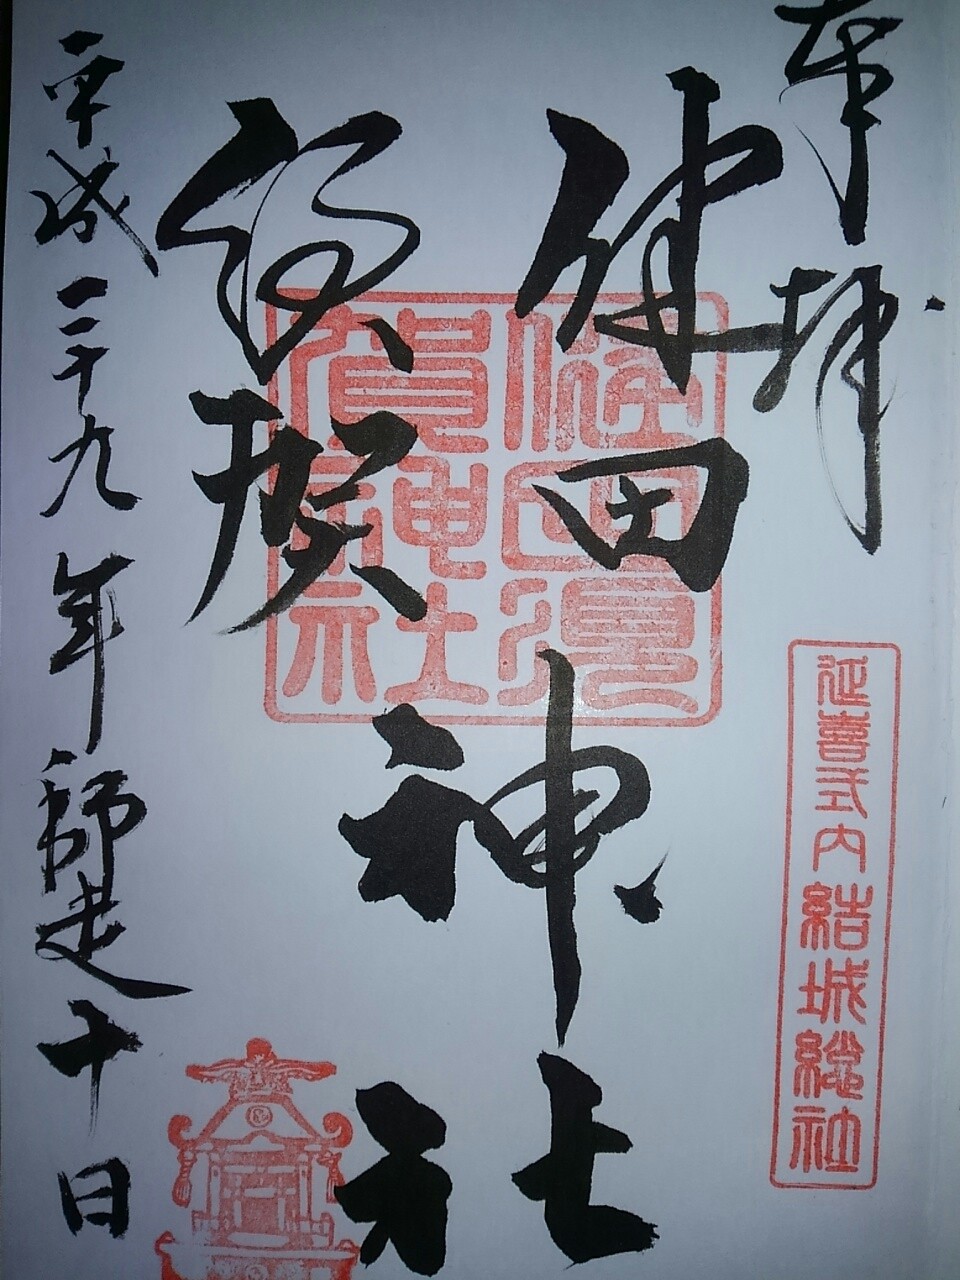 奉拝
延喜式内結城総社
健田
須賀
神社
健田須賀神社
平成二十九年師走十日